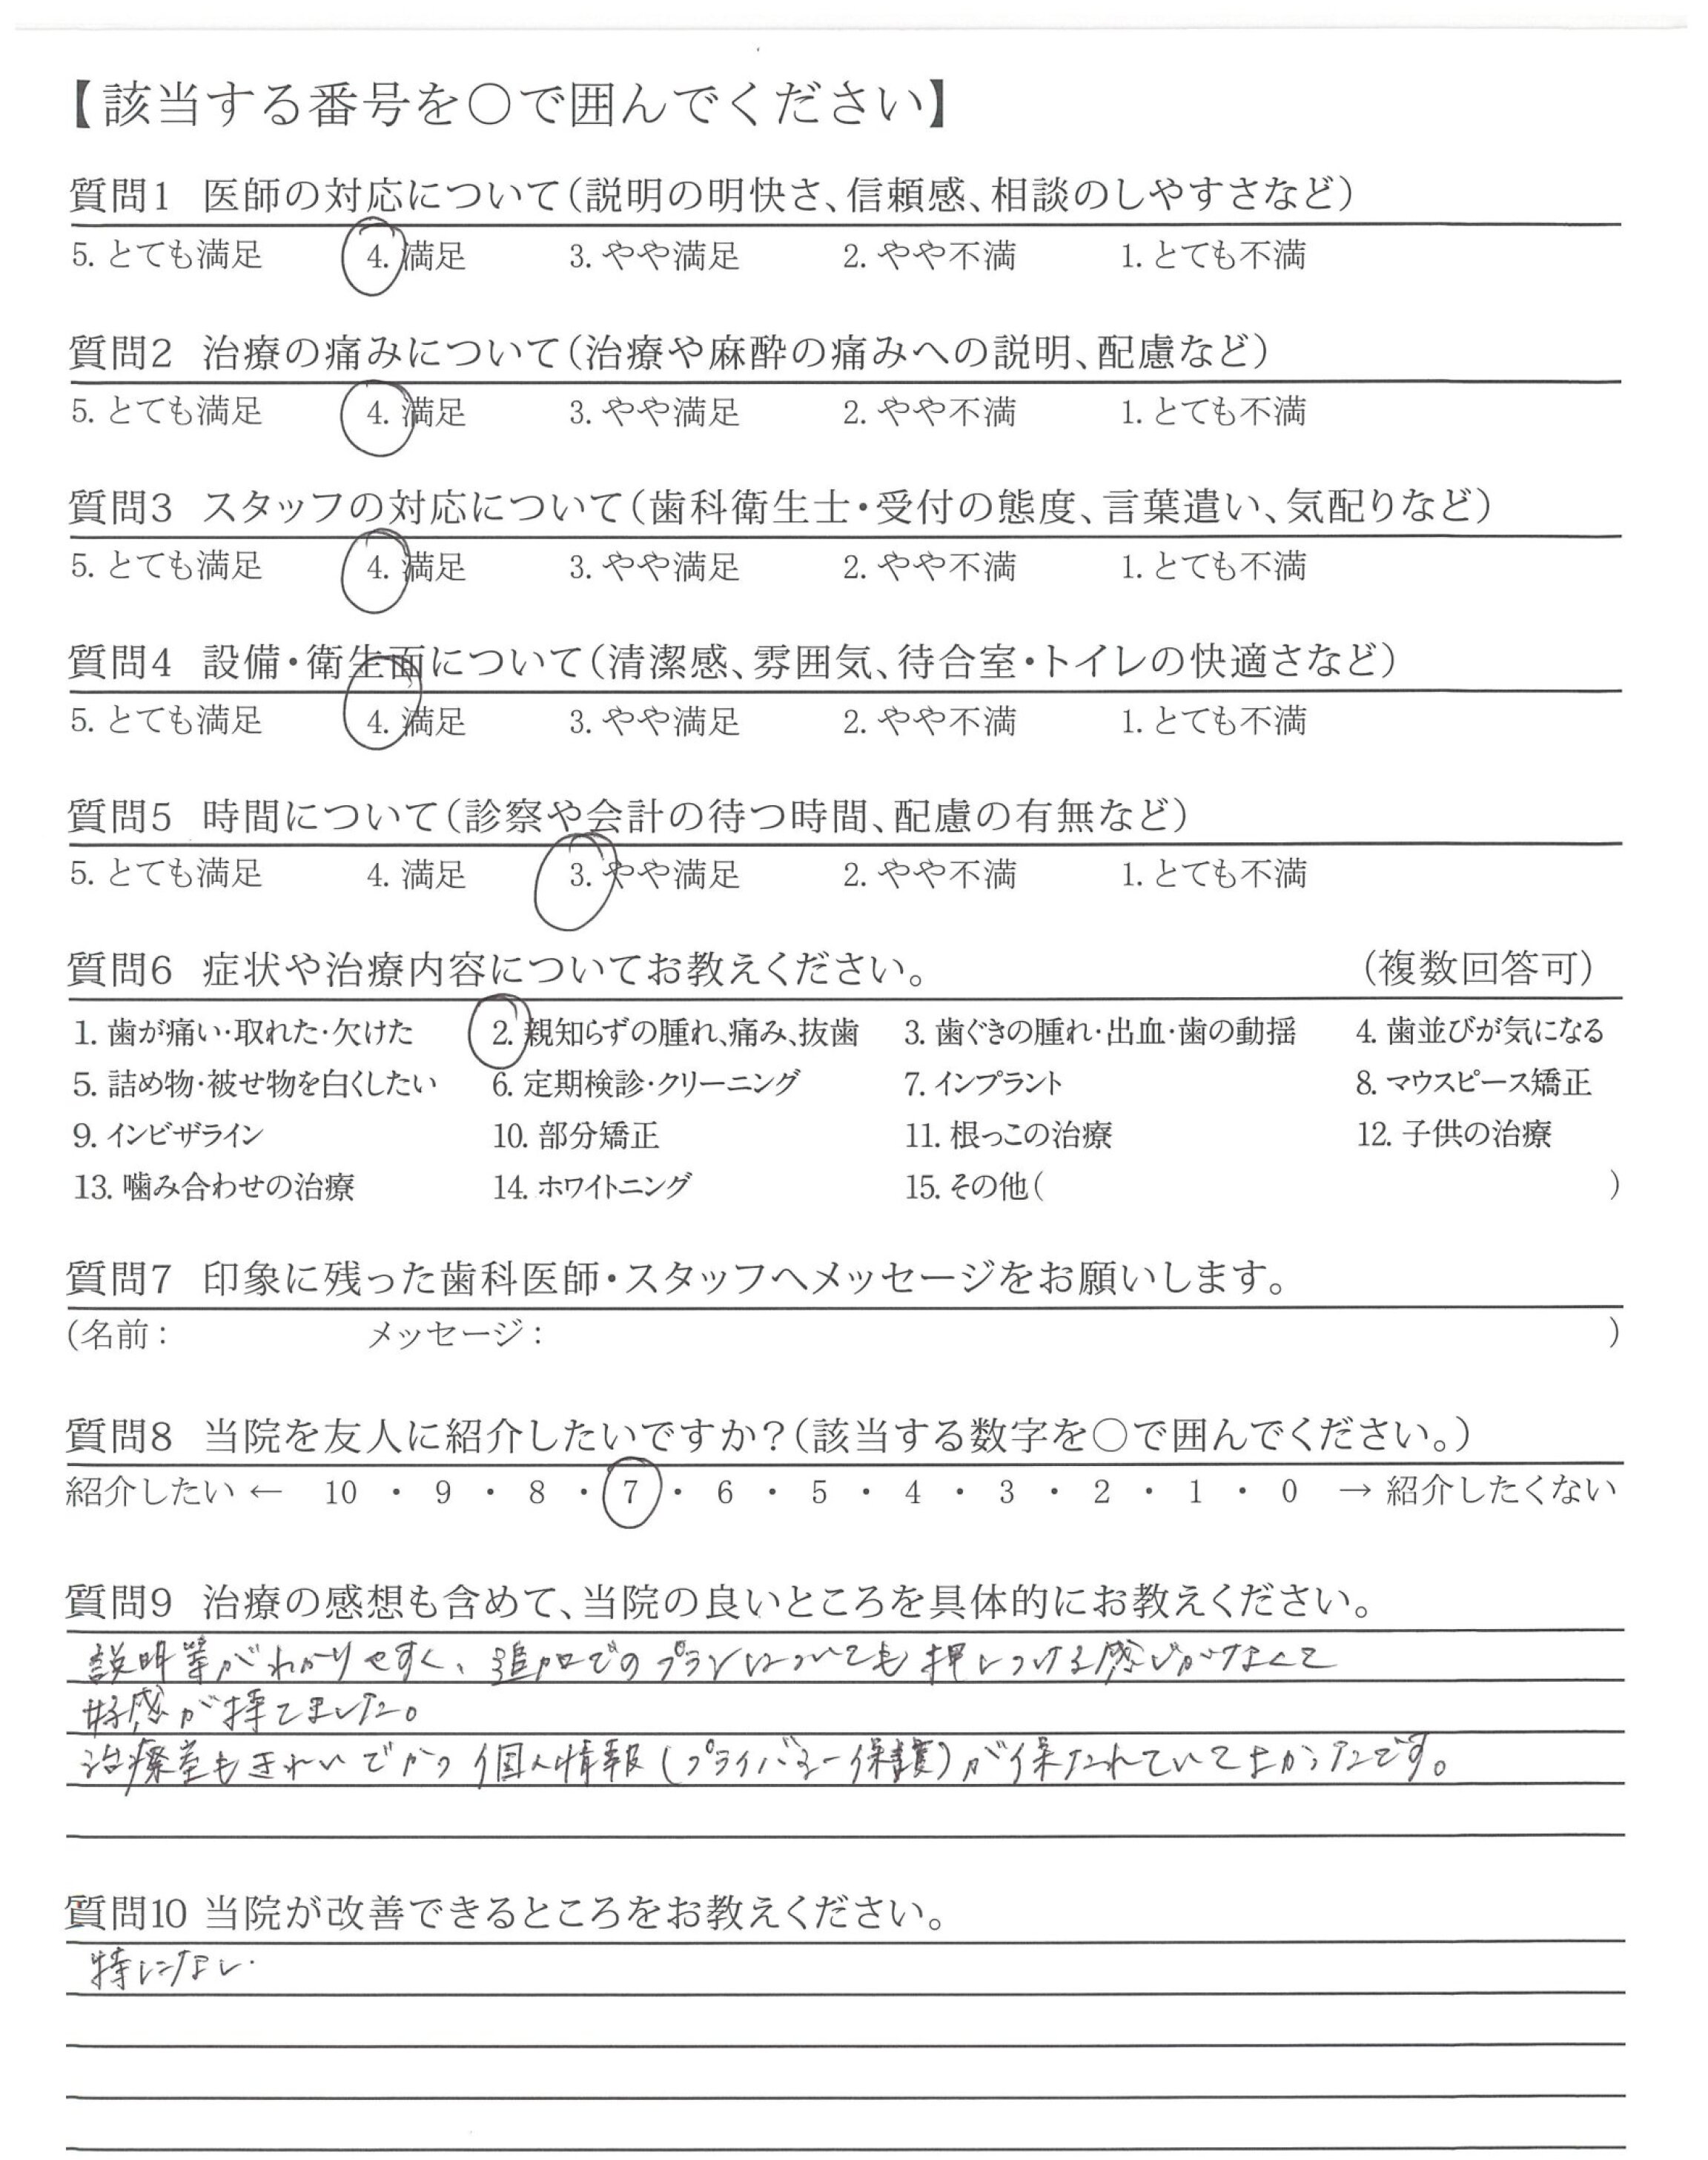 【該当する番号を○で囲んでください】
質問1 医師の対応について(説明の明快さ、信頼感、相談のしやすさなど)
5. とても満足 4. 満足 3. やや満足 2. やや不満 1. とても不満
質問2 治療の痛みについて(治療や麻酔の痛みへの説明、配慮など)
5. とても満足 4. 満足 3. やや満足 2. やや不満 1. とても不満
質問3 スタッフの対応について(歯科衛生士・受付の態度、言葉遣い、気配りなど)
5. とても満足 4. 満足 3. やや満足 2. やや不満 1. とても不満
質問4 設備・衛生面について(清潔感、雰囲気、待合室・トイレの快適さなど)
5. とても満足 4. 満足 3. やや満足 2. やや不満 1. とても不満
質問5 時間について(診察や会計の待つ時間、配慮の有無など)
5. とても満足 4. 満足 3. やや満足 2. やや不満 1. とても不満
質問6 症状や治療内容についてお教えください。 (複数回答可)
1. 歯が痛い・取れた・欠けた 2. 親知らずの腫れ、痛み、抜歯 3. 歯ぐきの腫れ・出血・歯の動揺 4. 歯並びが気になる
5. 詰め物・被せ物を白くしたい 6. 定期検診・クリーニング 7. インプラント 8. マウスピース矯正
9. インビザライン 10. 部分矯正 11. 根っこの治療 12. 子供の治療
13. 噛み合わせの治療 14. ホワイトニング 15. その他( )
質問7 印象に残った歯科医師・スタッフへメッセージをお願いします。
(名前: メッセージ: )
質問8 当院を友人に紹介したいですか?(該当する数字を○で囲んでください。)
紹介したい ← 10 ・ 9 ・ 8 ・ 7 ・ 6 ・ 5 ・ 4 ・ 3 ・ 2 ・ 1 ・ 0 → 紹介したくない
質問9 治療の感想も含めて、当院の良いところを具体的にお教えください。
説明等がわかりやすく、追加でのプランについても押しつける感じがなくて
好感が持てました。
治療室もきれいでかつ個人情報(プライバシー保護)が保たれていてよかったです。
質問10 当院が改善できるところをお教えください。
特にない